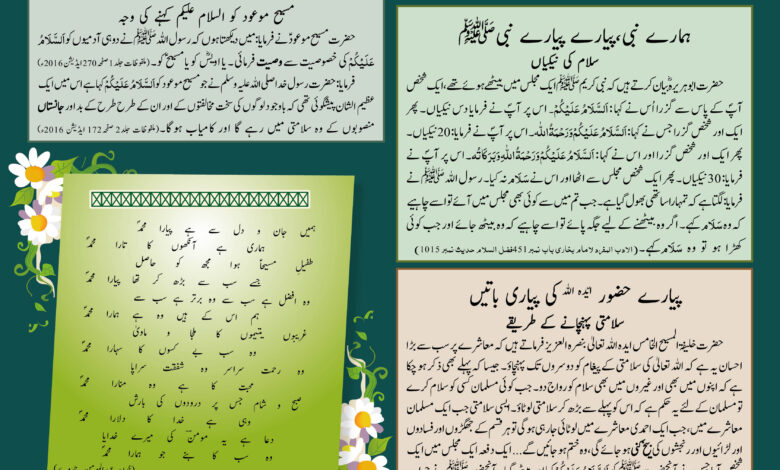 ہمارے نبی، پیارے پیارے نبی ﷺ
سلام کی نیکیاں
حضرت ابوہریرہؓ بیان کرتے ہیں کہ نبی کریم ﷺ ایک مجلس میں بیٹھے ہوئے تھے، ایک شخص
آپؐ کے پاس سے گزرا اُس نے کہا: اَلسَّلَامُ عَلَیْکُمْ۔ اس پر آپؐ نے فرمایا دس نیکیاں۔ پھر
ایک اور شخص گزرا جس نے کہا: اَلسَّلَامُ عَلَیْکُمْ وَرَحْمَۃُ اللہ۔ اس پر آپؐ نے فرمایا: 20 نیکیاں۔
پھر ایک اور شخص گزرا اور اس نے کہا: اَلسَّلَامُ عَلَیْکُمْ وَرَحْمَۃُ اللہِ وَبَرَکَاتُہ۔ اس پر آپؐ نے
فرمایا: 30 نیکیاں۔ پھر ایک شخص مجلس سے اٹھا اور اس نے سَلَام نہ کیا۔ رسول اللہ ﷺ نے
فرمایا: لگتا ہے کہ تمہارا ساتھی بھول گیا ہے۔ جب تم میں سے کوئی بھی مجلس میں آئے تو اسے چاہیے
کہ وہ سَلَام کہے۔ اگر وہ بیٹھنے کے لیے جگہ پائے تو اسے چاہیے کہ وہ بیٹھ جائے اور جب کوئی
کھڑا ہو تو وہ سَلَام کہے۔ (الادب المفرد لامام بخاری باب نمبر 451 فضل السلام حدیث نمبر 1015)
مسیح موعود کو السلام علیکم کہنے کی وجہ
حضرت مسیح موعودؑ نے فرمایا: میں دیکھتا ہوں کہ رسول اللہ ﷺ نے دو ہی آدمیوں کو اَلسَّلَامُ
عَلَیْکُمْ کی خصوصیت سے وصیت فرمائی۔ یا اویسؓ کو یا مسیح کو۔ (ملفوظات جلد 1 صفحہ 270 ایڈیشن 2016ء)
فرمایا: حضرت رسول خدا صلی اللہ علیہ وسلم نے جو مسیح موعود کو اَلسَّلَامُ عَلَیْکُمْ کہا ہے اس میں ایک
عظیم الشان پیشگوئی تھی کہ باوجود لوگوں کی سخت مخالفتوں کے اور ان کے طرح طرح کے بد اور جانستاں
منصوبوں کے وہ سلامتی میں رہے گا اور کامیاب ہوگا۔ (ملفوظات جلد 2 صفحہ 172 ایڈیشن 2016ء)
ہمیں جان و دل سے ہے پیارا محمدؐ
ہماری ہے آنکھوں کا تارا محمدؐ
طفیلِ مسیحا ہوا مجھ کو حاصل
جسے سب سے بڑھ کر تھا پیارا محمدؐ
وہ افضل ہے سب سے وہ برتر ہے سب سے
ہم اس کے ہیں وہ ہے ہمارا محمدؐ
غریبوں یتیموں کا ملجا و ماویٰ
وہ سب بے کسوں کا سہارا محمدؐ
وہ رحمت سراسر وہ شفقت سراپا
محبت کا ہے وہ منارا محمدؐ
صبح و شام جس پر درودوں کی بارش
وہی ہے خدا کا دلارا محمدؐ
دعا ہے یہ مومنؔ کی میرے خدایا
وہ سب کا بنے جو ہمارا محمدؐ
پیارے حضور ایّدہ اللہ کی پیاری باتیں
سلامتی پہنچانے کے طریقے
حضرت خلیفۃ المسیح الخامس ایدہ اللہ تعالیٰ بنصرہ العزیز فرماتے ہیں کہ معاشرے پر سب سے بڑا
احسان یہ ہے کہ اللہ تعالیٰ کی سلامتی کے پیغام کو دوسروں تک پہنچاؤ۔ جیسا کہ پہلے بھی ذکر ہو چکا
ہے کہ اپنوں میں بھی اور غیروں میں بھی سلام کو رواج دو۔ جب کوئی مسلمان کسی کو سلام کرے
تو مسلمان کے لئے یہ حکم ہے کہ اس کو پہلے سے بڑھ کر سلامتی لوٹاؤ۔ ایسی سلامتی جب ایک
معاشرے میں، جب ایک احمدی معاشرے میں لوٹائی جا رہی ہوگی تو ہر قسم کے جھگڑوں اور فسادوں
اور لڑائیوں اور رنجشوں کی بیخ کنی ہو جائے گی، وہ ختم ہو جائیں گے۔ ... ایک دفعہ ایک مجلس میں ایک